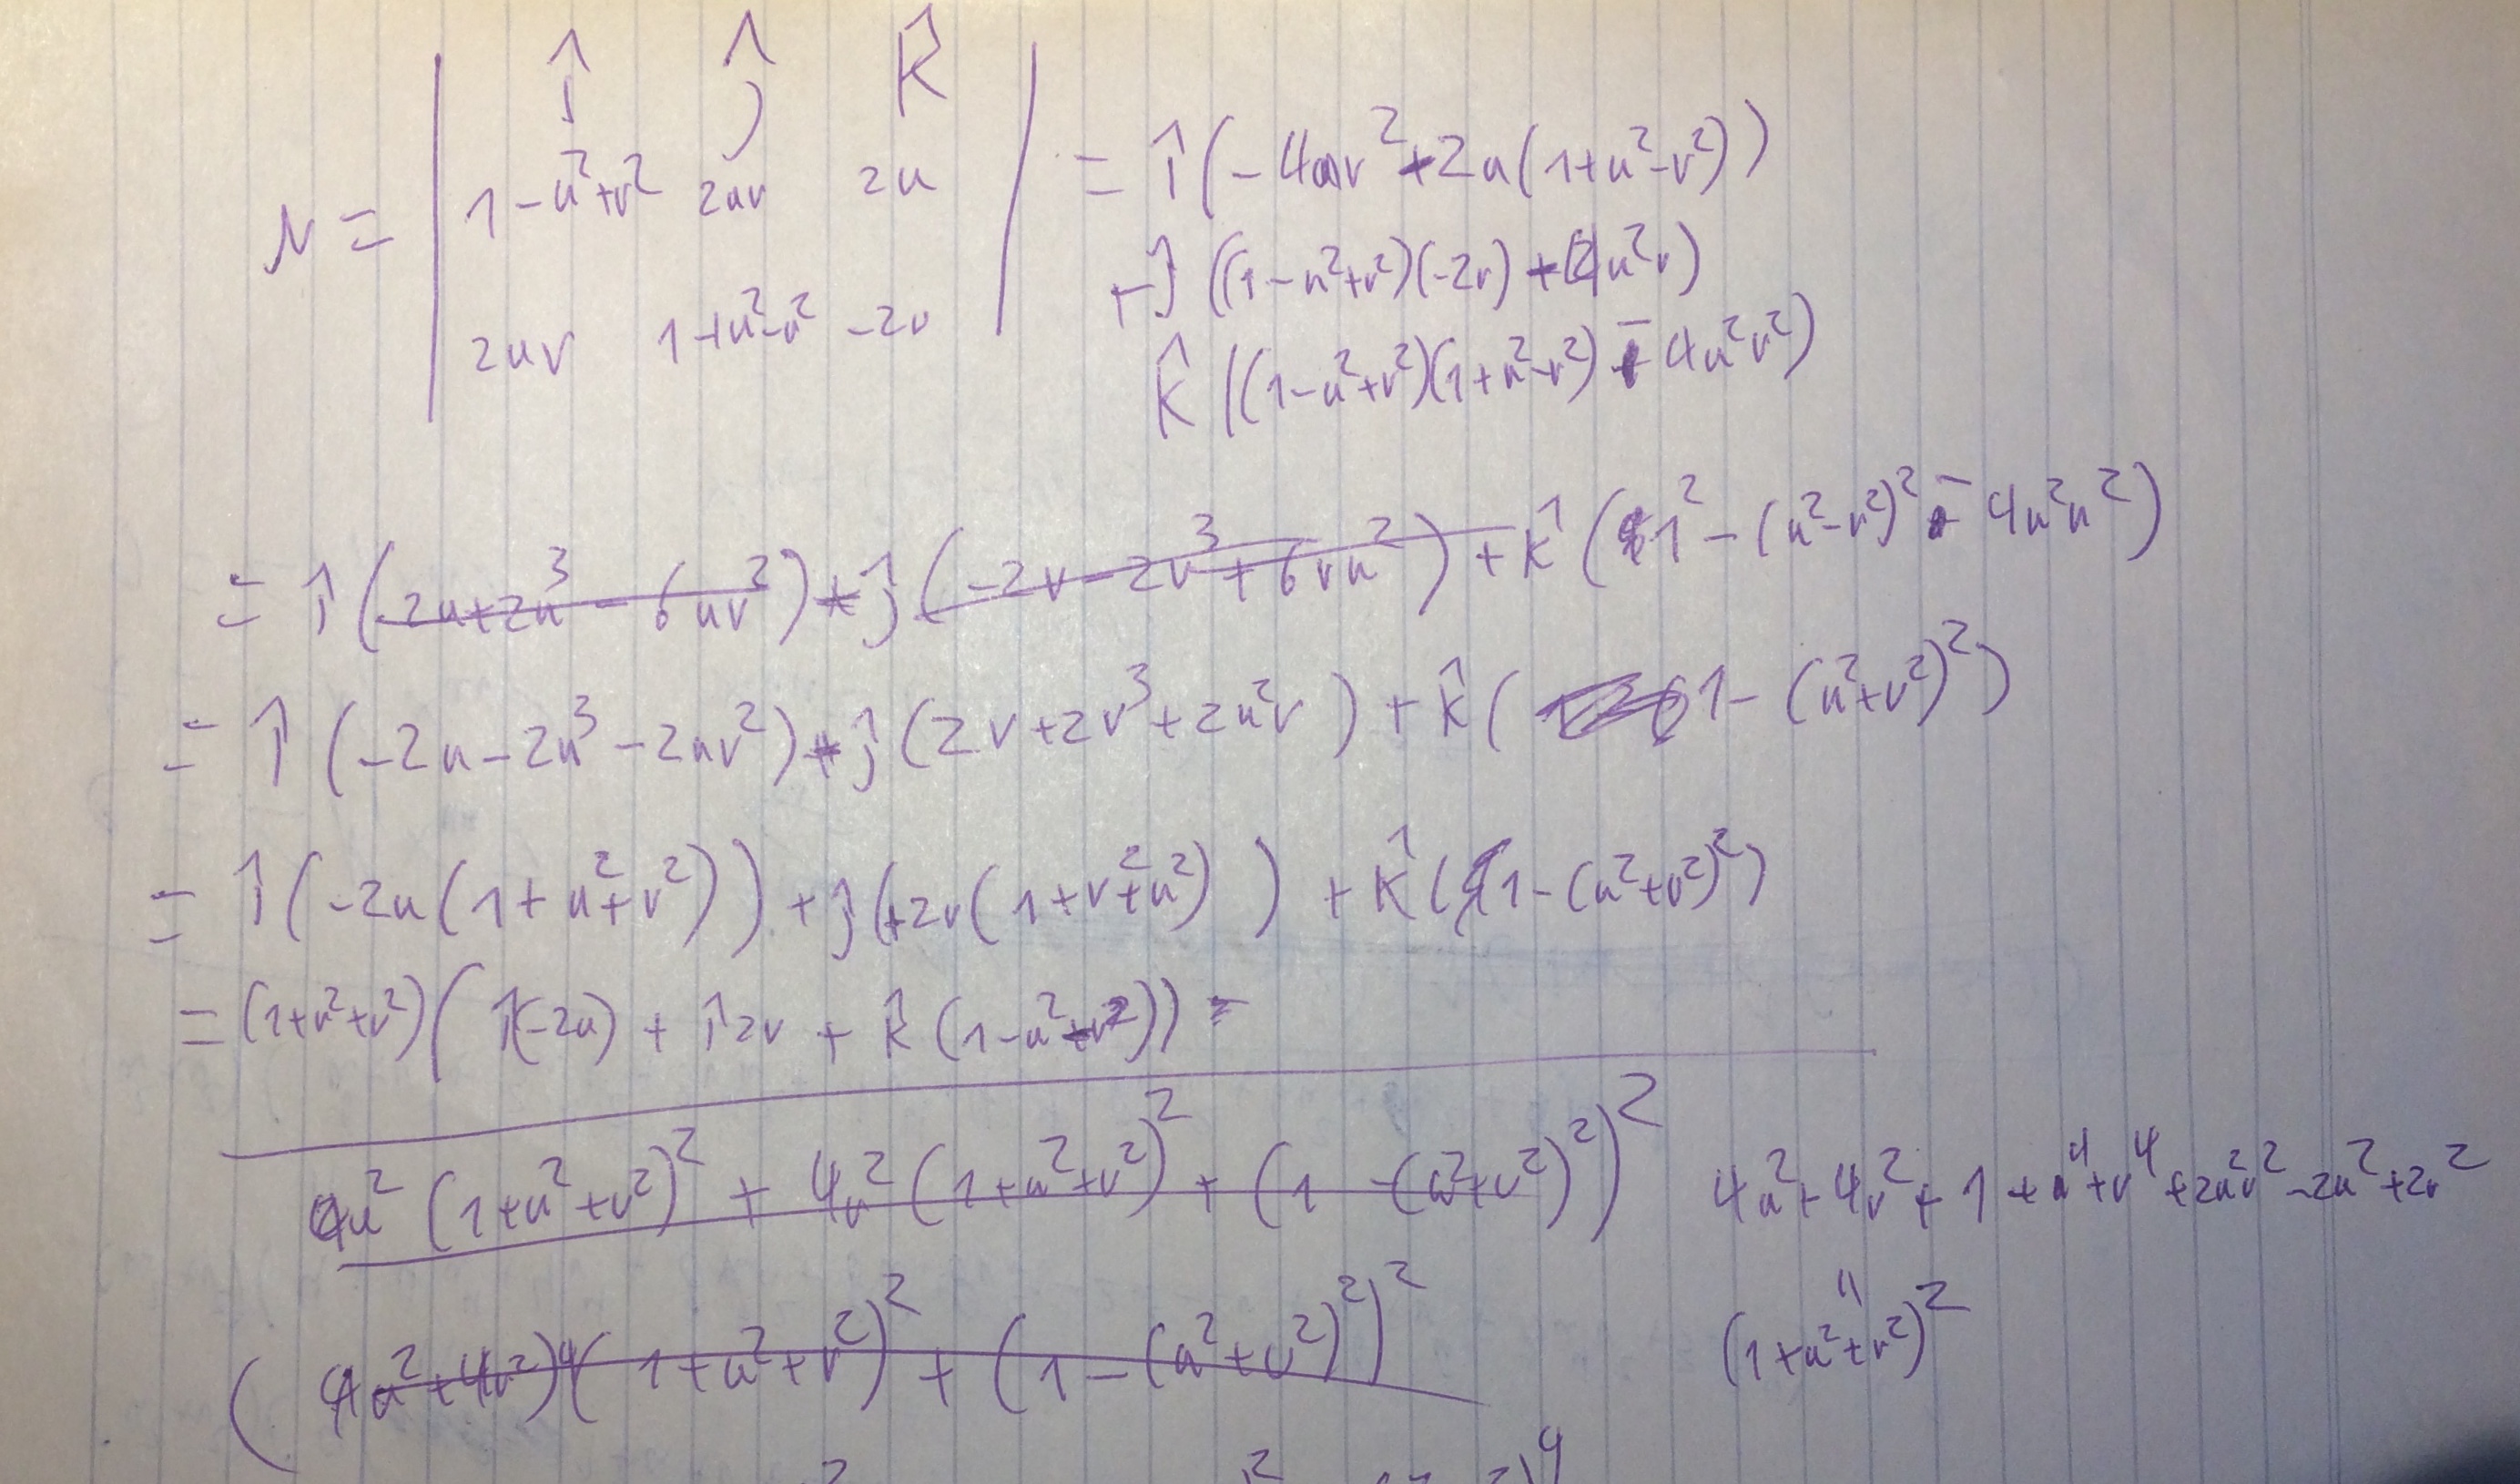 î ĵ k̂
N = | 1-u²+v² 2uv 2u | = î(-4uv²+2u(1+u²-v²))
-ĵ((1-u²+v²)(-2v)+4u²v)
2uv 1+u²-v² -2v
k̂((1-u²+v²)(1+u²-v²) - 4u²v²)
= î(-2u+2u³-6uv²)+ĵ(-2v-2v³+6vu²)+k̂(1²-(u²-v²)²-4u²v²)
= î(-2u-2u³-2uv²)+ĵ(2v+2v³+2u²v)+k̂(1-(u²+v²)²)
= î(-2u(1+u²+v²))+ĵ(+2v(1+v²+u²))+k̂(1-(u²+v²)²)
= (1+u²+v²)(î(-2u)+î2v+k̂(1-u²-v²)) =
4u²(1+u²+v²)²+4v²(1+u²+v²)²+(1-(u²+v²)²)² 4u²+4v²+1+u⁴+v⁴+2u²v²-2u²+2v²
"
(4u²+4v²)(1+u²+v²)²+(1-(u²+v²)²)² (1+u²+v²)²